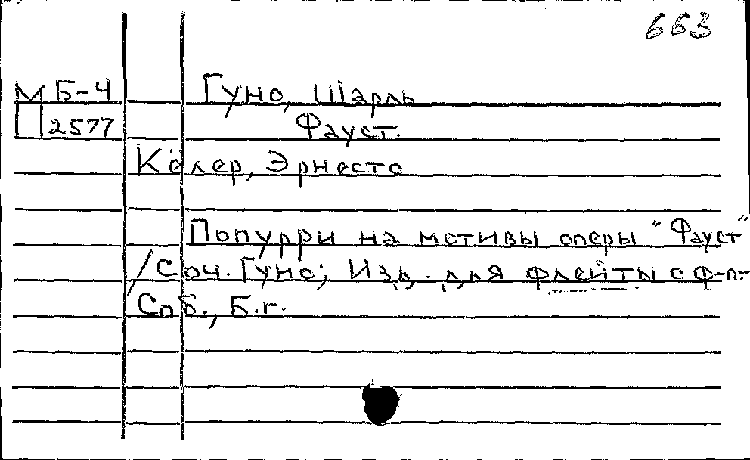 663
М Б-4 Гуно, Шарль
П 2577 Фауст.
Кёлер, Эрнесто
Попурри на мотивы оперы "Фауст"
/Соч. Гуно; Изд. для флейты с ф-п.-
Спб., Б.г.